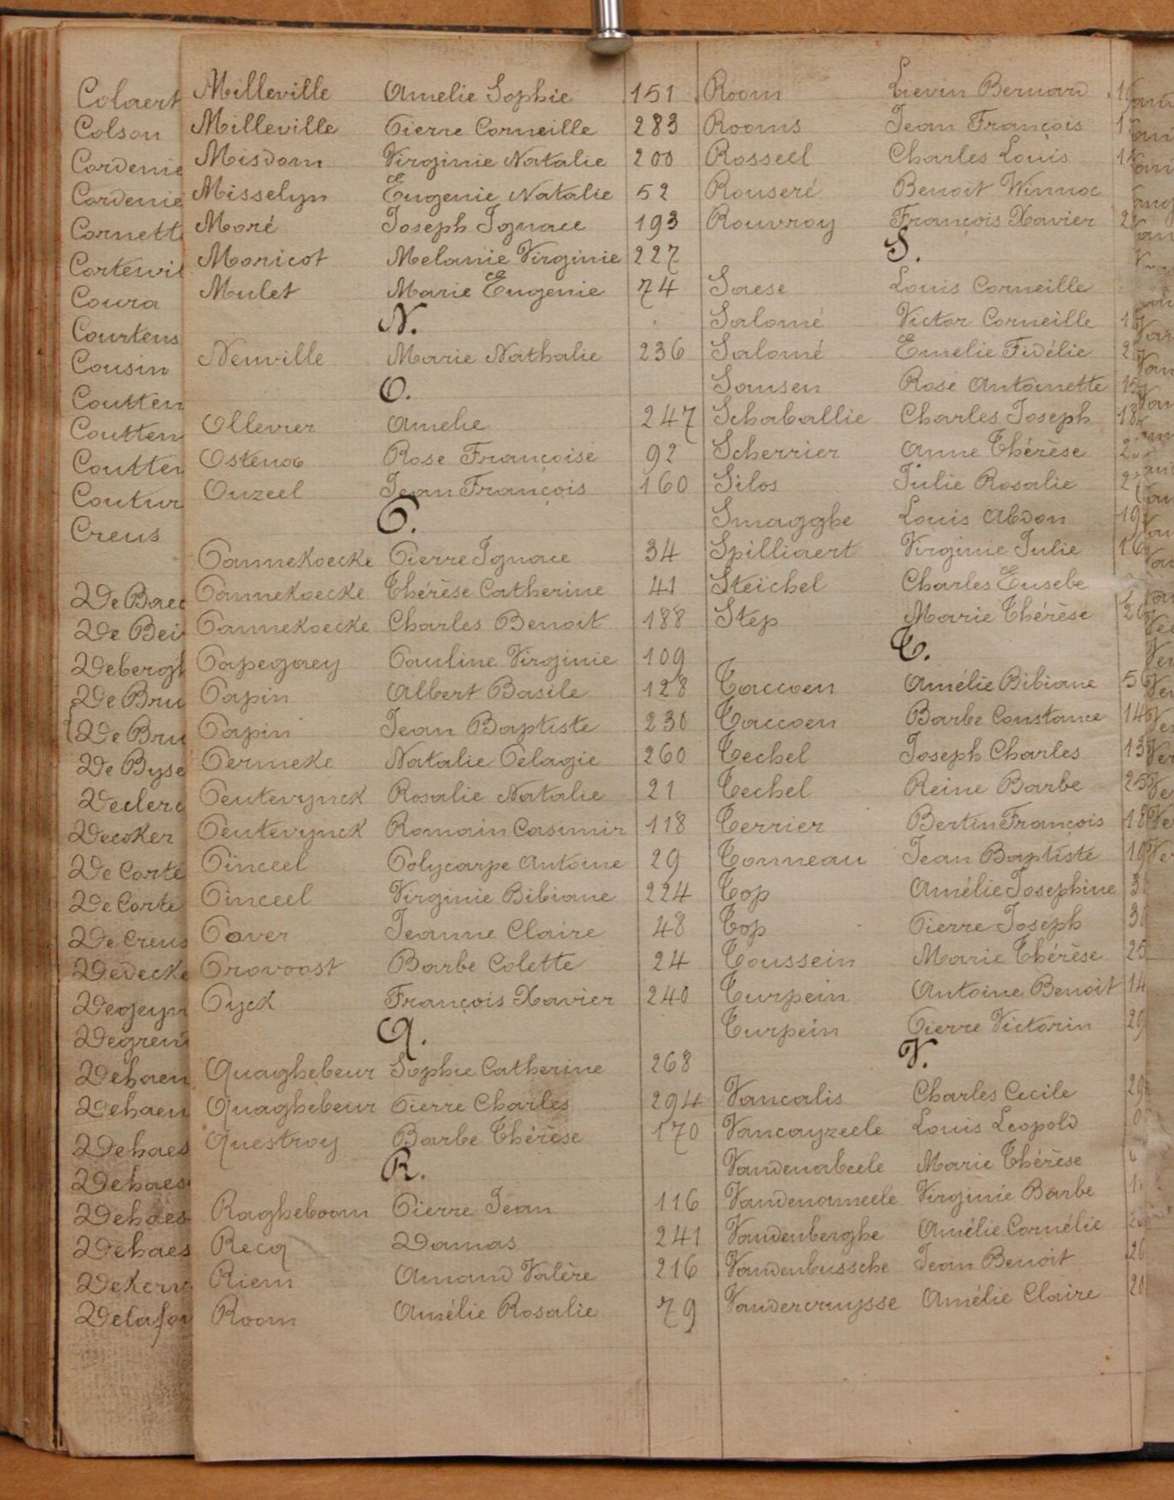 Colaert
Colson
Cordenie
Cordenie
Cornett
Cortewil
Coura
Courtens
Cousin
Coutten
Coutten
Coutten
Coutur
Creus
De Baec
De Bei
Debergh
De Bru
De Bru
De Byse
Declerc
Decoker
De Corte
De Corte
De Creus
Dedecke
Degeyn
Degren
Dehaen
Dehaen
Dehaes
Dehaes
Dehaes
Dehaes
Dekerv
Delafon
Milleville Amelie Sophie 151
Milleville Pierre Corneille 283
Misdom Virginie Natalie 200
Misselyn Eugenie Natalie 52
Moré Joseph Ignace 193
Moricot Melanie Virginie 227
Mulet Marie Eugenie 74
N.
Neuville Marie Nathalie 236
O.
Ollevier Amelie 247
Ostenoc Rose Françoise 92
Ouzeel Jean François 160
P.
Pannekoecke Pierre Ignace 34
Pannekoecke Thérèse Catherine 41
Pannekoecke Charles Benoit 188
Papegaey Pauline Virginie 109
Papin Albert Basile 128
Papin Jean Baptiste 230
Permeke Natalie Pelagie 260
Peutevynck Rosalie Natalie 21
Peutevynck Romain Casimir 118
Pinceel Polycarpe Antoine 29
Pinceel Virginie Bibiane 224
Pover Jeanne Claire 48
Provoost Barbe Colette 24
Pyck François Xavier 240
Q.
Quaghebeur Sophie Catherine 268
Quaghebeur Pierre Charles 294
Questroy Barbe Thérèse 170
R.
Ragheboom Pierre Jean 116
Recq Damas 241
Riem Amand Valère 216
Room Amélie Rosalie 79
Room Lievin Bernard
Rooms Jean François
Rosseel Charles Louis
Rouseré Benoit Winnoc
Rouvroy François Xavier
S.
Saese Louis Corneille
Salomé Victor Corneille
Salomé Emelie Fidélie
Sansen Rose Antoinette
Schaballie Charles Joseph
Scherrier Anne Thérèse
Silos Julie Rosalie
Smagghe Louis Abdon
Spilliaert Virginie Julie
Steichel Charles Eusebe
Step Marie Thérèse
T.
Taccoen Amélie Bibiane
Taccoen Barbe Constance
Techel Joseph Charles
Techel Reine Barbe
Terrier Bertin François
Tonneau Jean Baptiste
Top Amélie Josephine
Top Pierre Joseph
Toussein Marie Thérèse
Turpein Antoine Benoit
Turpein Pierre Victorin
V.
Vancalis Charles Cecile
Vancayzeele Louis Leopold
Vandenabeele Marie Thérèse
Vandenameele Virginie Barbe
Vandenberghe Amélie Cornélie
Vandenbussche Jean Benoit
Vandercruysse Amélie Claire